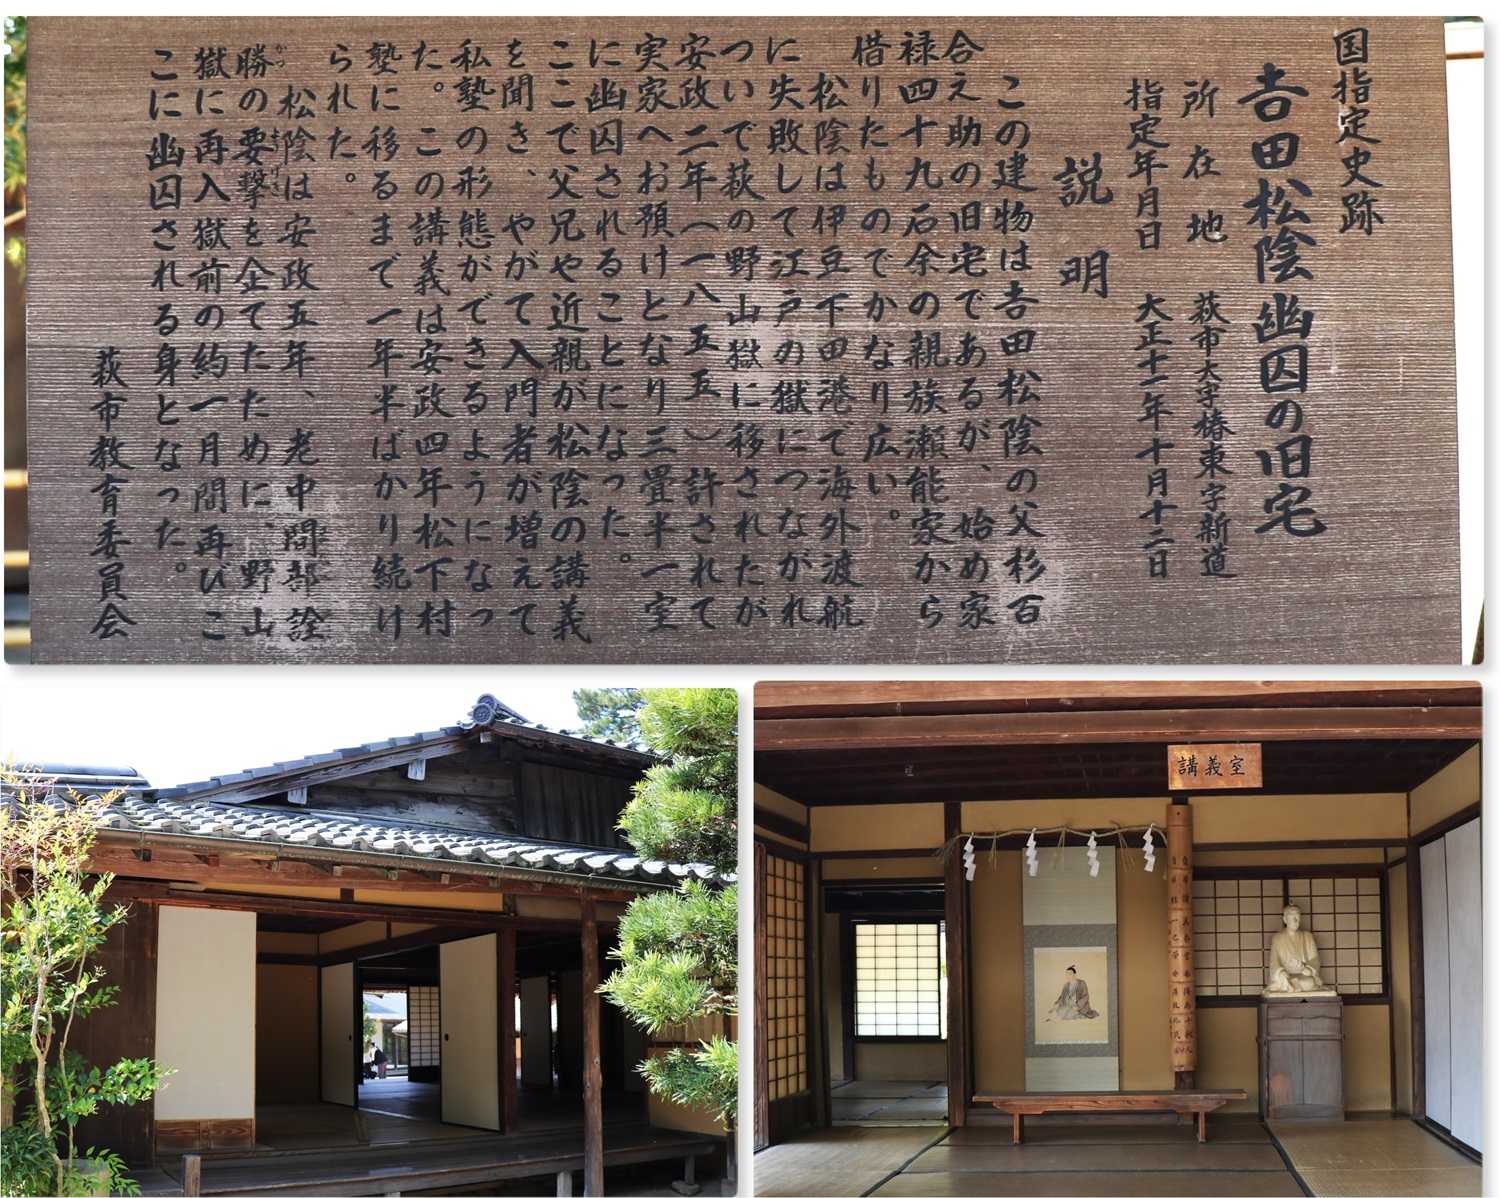 国指定史跡
吉田松陰幽囚の旧宅
所在地 萩市大字椿東字新道
指定年月日 大正十一年十月十二日
説明
この建物は吉田松陰の父杉百
合之助の旧宅であるが、始め家
禄四十九石余の親族瀬能家から
借りたものでかなり広い。
松陰は伊豆下田港で海外渡航
に失敗して江戸の獄につながれ
ついで萩の野山獄に移されたが
安政二年（一八五五）許されて
実家へお預けとなり三畳半一室
に幽囚されることになった。
ここで父兄や近親が松陰の講義
を聞き、やがて入門者が増えて
私塾の形態ができるようになっ
た。この講義は安政四年松下村
塾に移るまで一年半ばかり続け
られた。
松陰は安政五年、老中間部詮
勝の要撃を企てたために、野山
獄に再入獄前の約一月間再びこ
こに幽囚される身となった。
萩市教育委員会
講義室